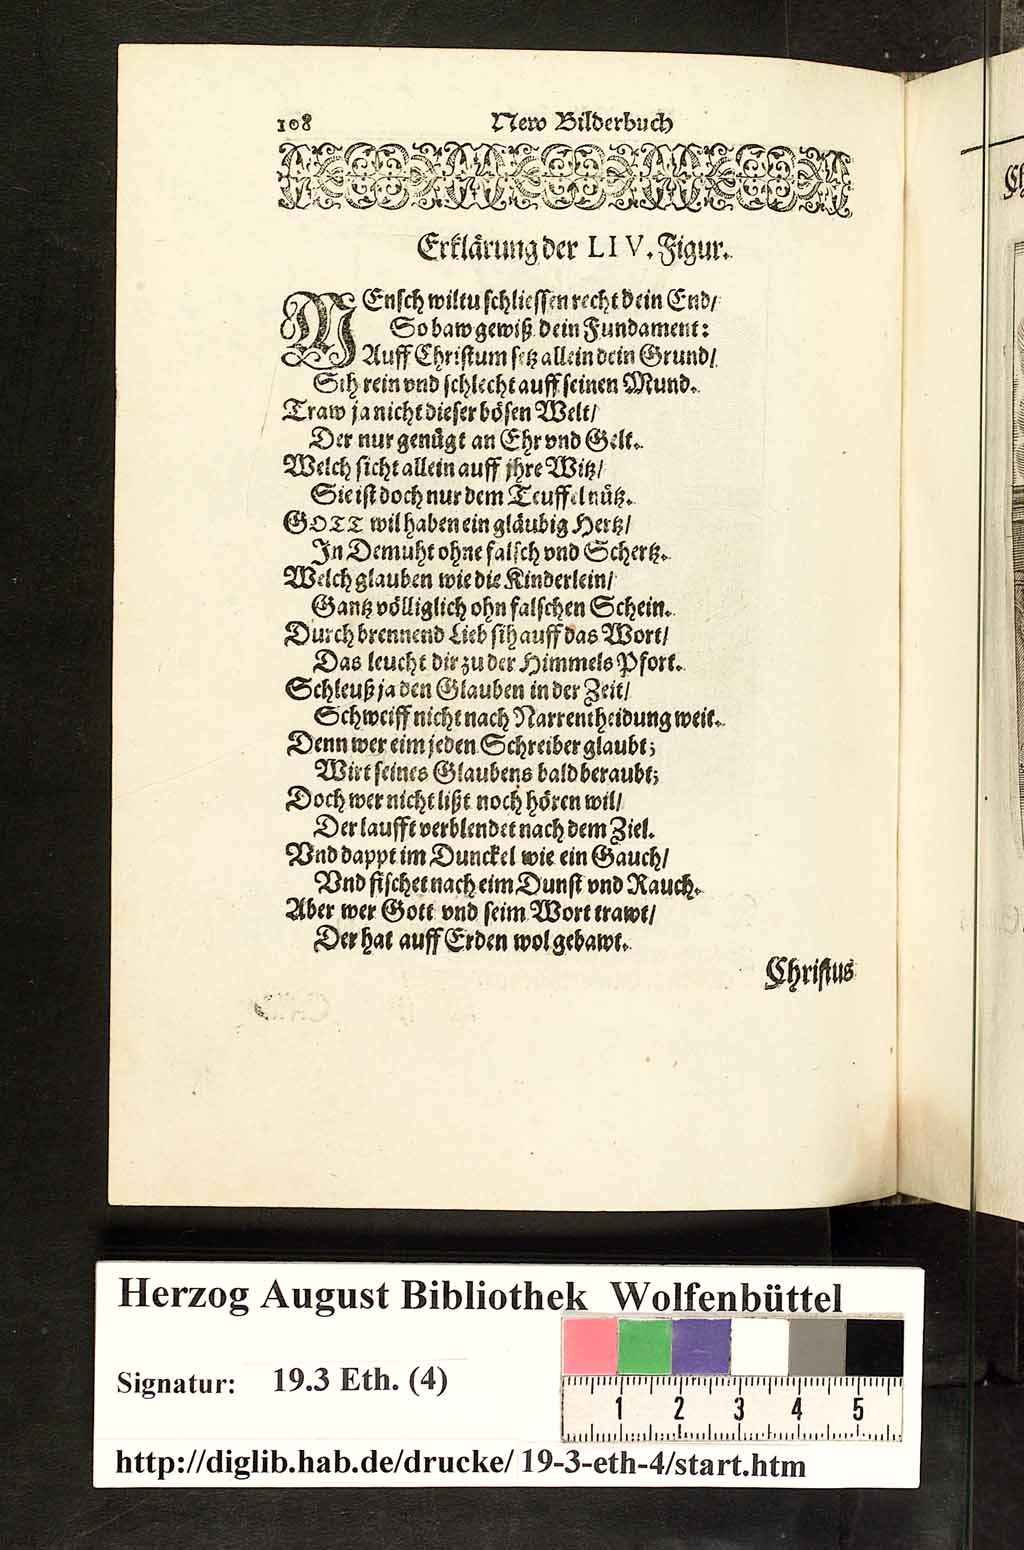 108 New Bilderbuch
Erklärung der LIV. Figur.
MEnsch wiltu schliessen recht dein End/
So baw gewiß dein Fundament:
Auff Christum setz allein dein Grund/
Sih rein vnd schlecht auff seinen Mund.
Traw ja nicht dieser bösen Welt/
Der nur genügt an Ehr vnd Gelt.
Welch sicht allein auff jhre Witz/
Sie ist doch nur dem Teuffel nütz.
GOTT wil haben ein gläubig Hertz/
In Demuht ohne falsch vnd Schertz.
Welch glauben wie die Kinderlein/
Gantz völliglich ohn falschen Schein.
Durch brennend Lieb sih auff das Wort/
Das leucht dir zu der Himmels Pfort.
Schleuß ja den Glauben in der Zeit/
Schweiff nicht nach Narrentheidung weit.
Denn wer eim jeden Schreiber glaubt;
Wirt seines Glaubens bald beraubt;
Doch wer nicht lißt noch hören wil/
Der laufft verblendet nach dem Ziel.
Vnd dappt im Dunckel wie ein Gauch/
Vnd fischet nach eim Dunst vnd Rauch.
Aber wer Gott vnd seim Wort trawt/
Der hat auff Erden wol gebawt.
Christus
Herzog August Bibliothek Wolfenbüttel
Signatur: 19.3 Eth. (4)
1 2 3 4 5
http://diglib.hab.de/drucke/19-3-eth-4/start.htm